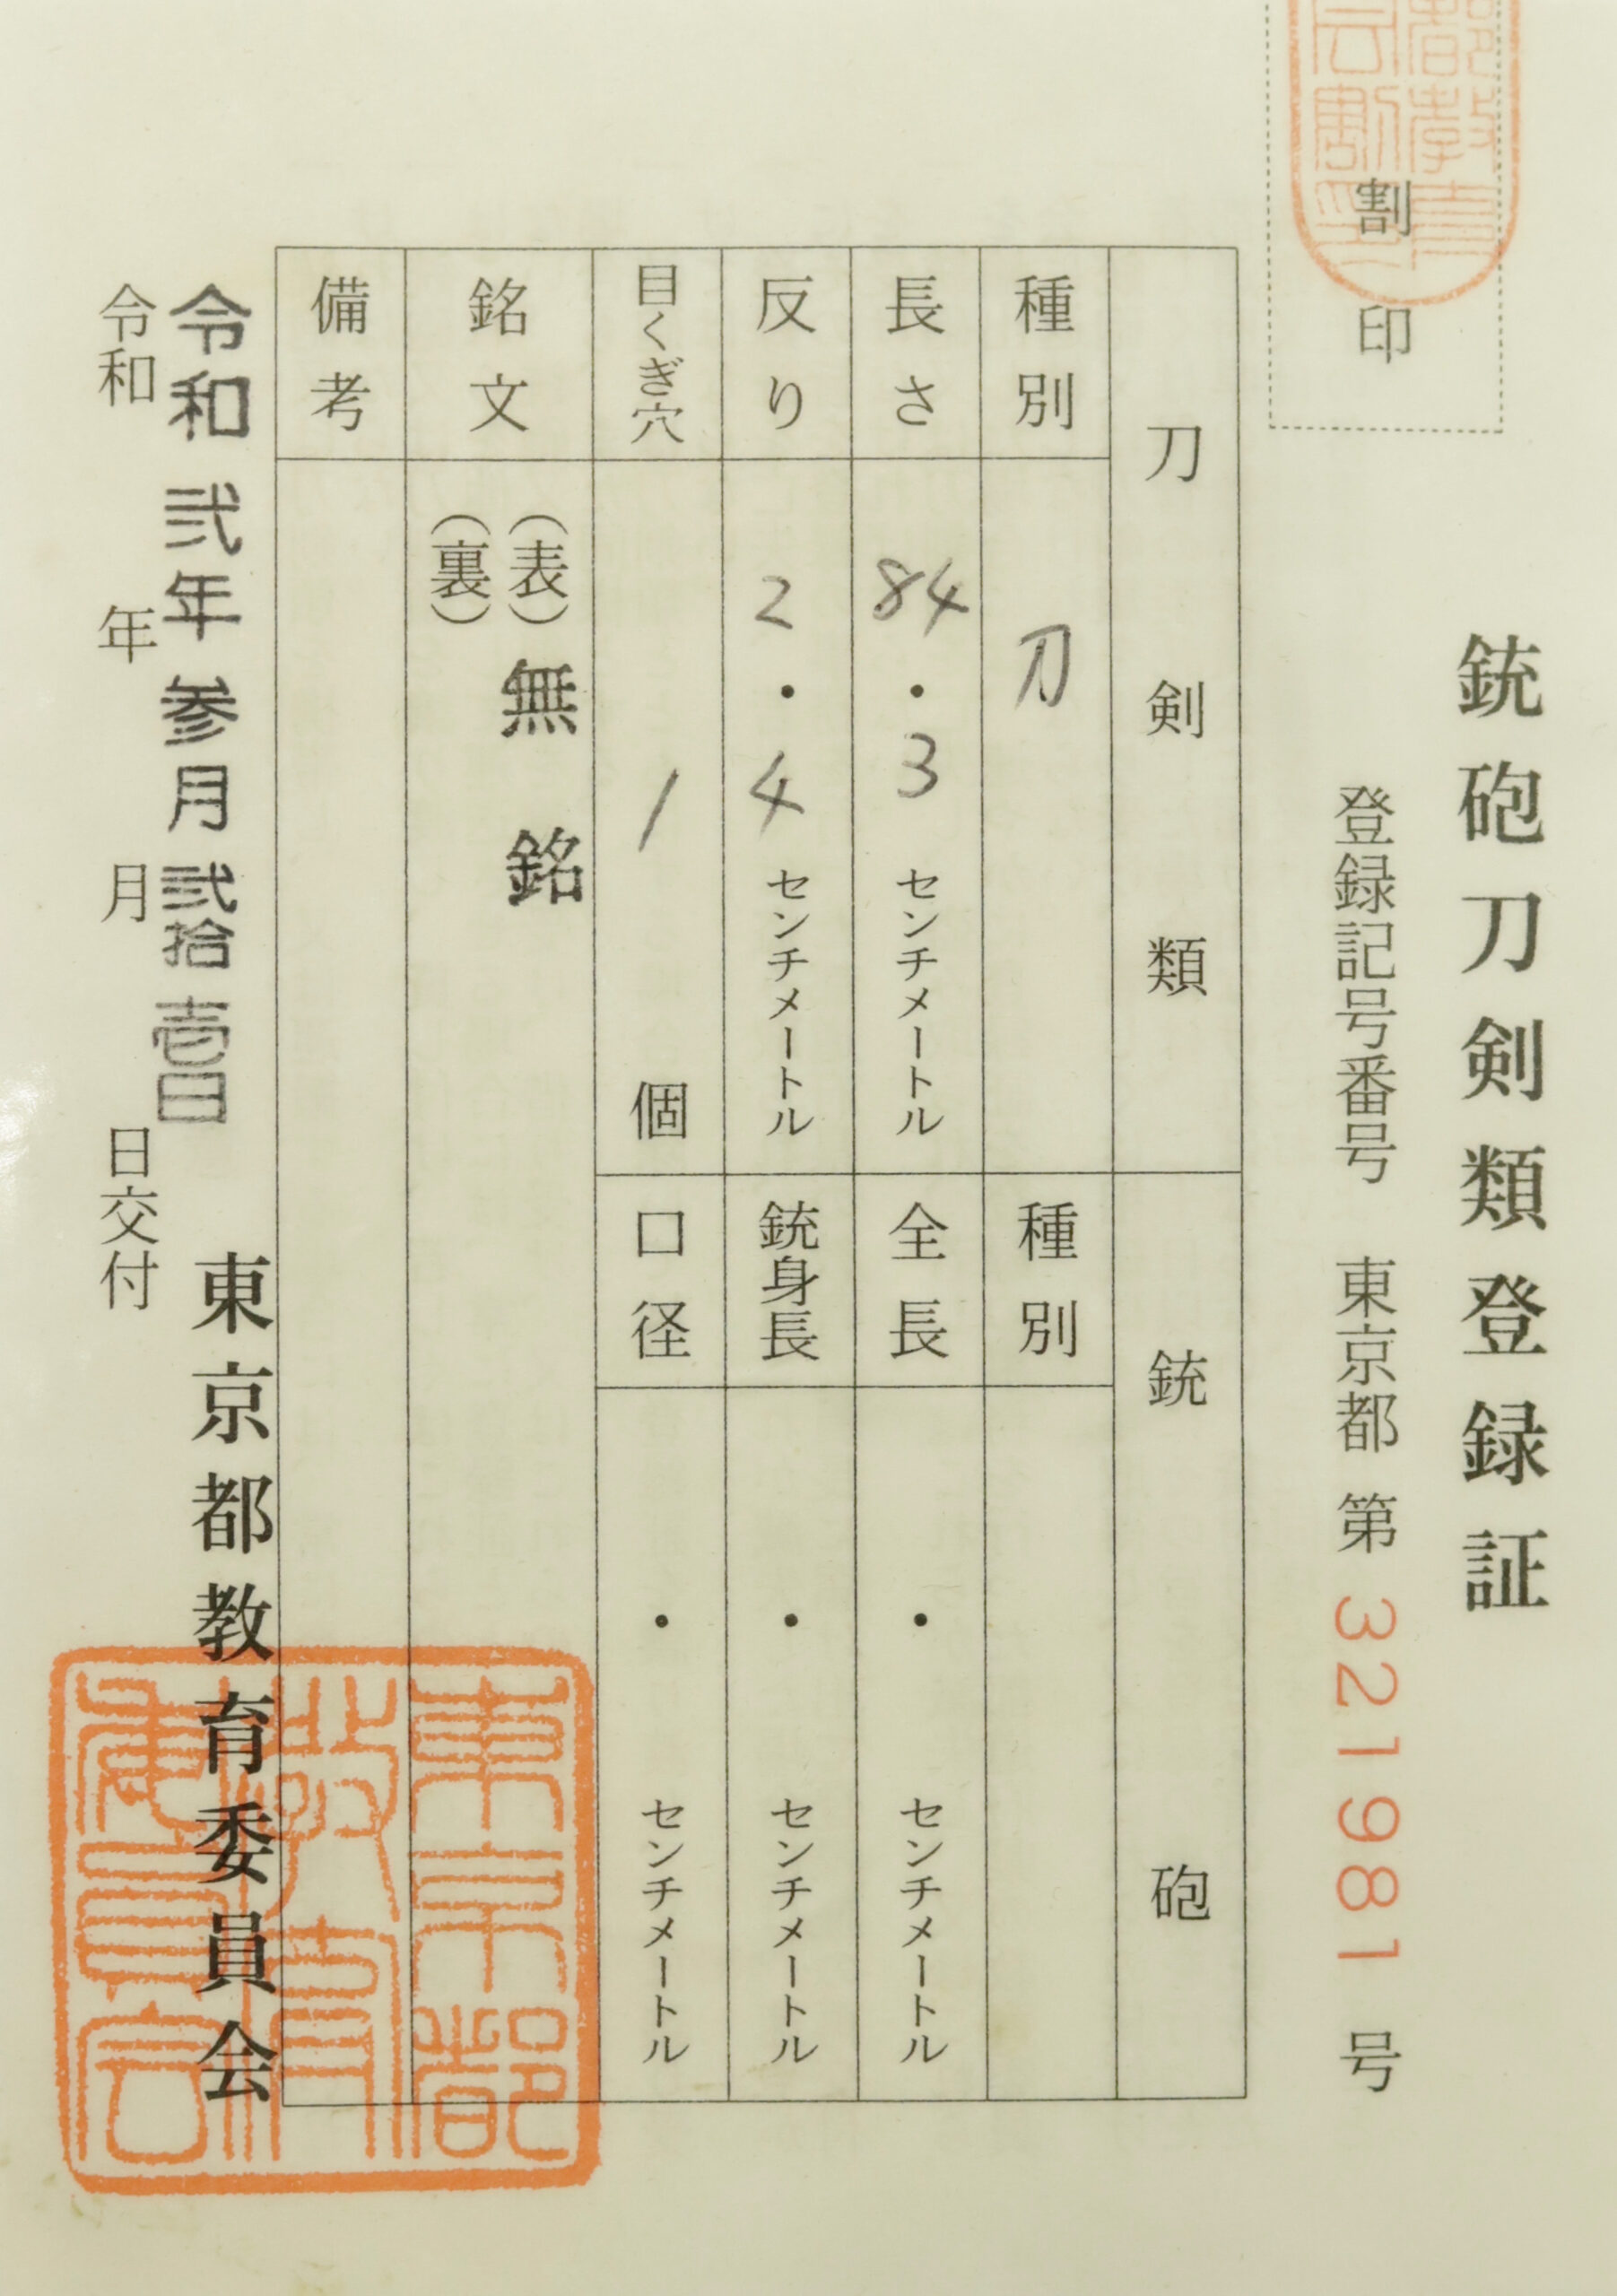 銃砲刀剣類登録証
割印
登録記号番号 東京都 第 321981 号
刀剣類
銃砲
種別 刀
種別
長さ 84・3 センチメートル
全長 ・ センチメートル
反り 2・4 センチメートル
銃身長 ・ センチメートル
目くぎ穴 1 個
口径 ・ センチメートル
銘文 (表) 無銘
(裏)
備考
令和弐年参月弐拾壱日
令和 年 月 日交付
東京都教育委員会
東京都
教育
委員会